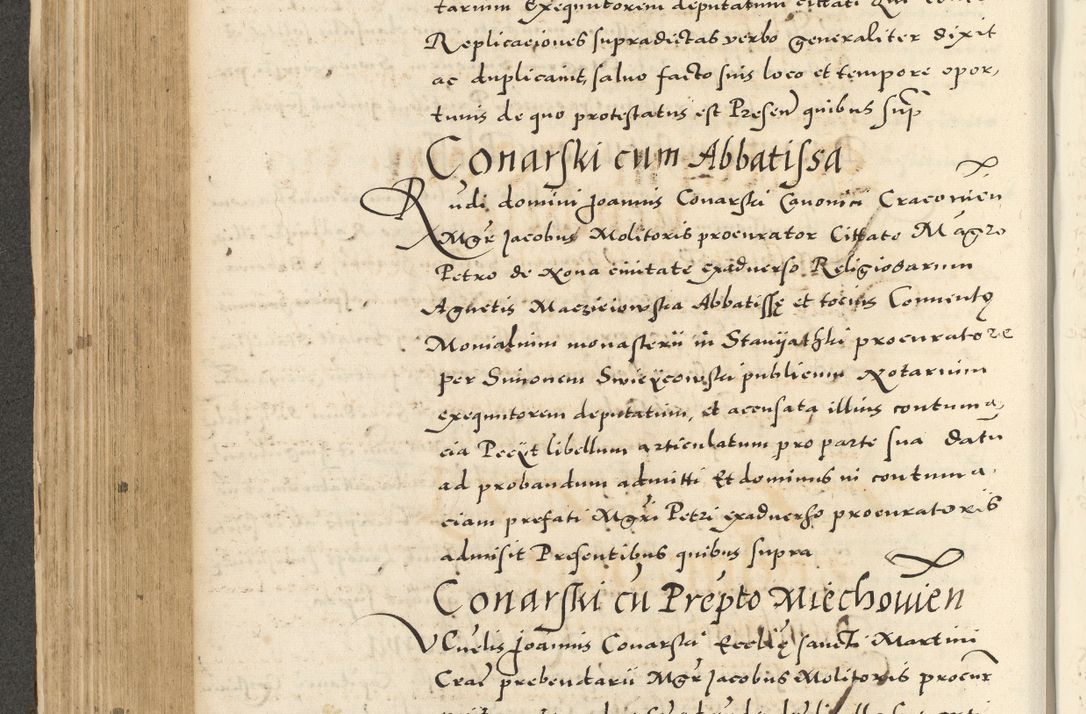 tarium Exequutorem deputatum cittati
Replicaciones supradictas verbo generaliter dixit
ac duplicavit, salvo facto suis loco et tempore opor,
tunis de quo protestatus est Presen quibus sup
Conarski cum Abbatissa
Rndi domini Joannis Conarski Canonici Cracovien
Mgr Jacobus Molitoris procurator Cittato Magro
Petro de Nova civitate exadverso Religiosarum
Agnetis Maczieiowska Abbatissę et tocius Conventus
Monialium monasterii in Staniathki procuratore
per Simonem Swieÿcowski publicum Notarium
exequutorem deputatum, et accusata illius contuma,
cia Peciit libellum articulatum pro parte sua datu
ad probandum admitti Et dominus in contuma,
ciam prefati Mgri Petri exadverso procuratoris
admisit Presentibus quibus supra
Conarski cu Prepto Miechovien
Venlis Joannis Conarski Ecclię sancti Martini
Crac prebendarii Mgr Jacobus Molitoris procur